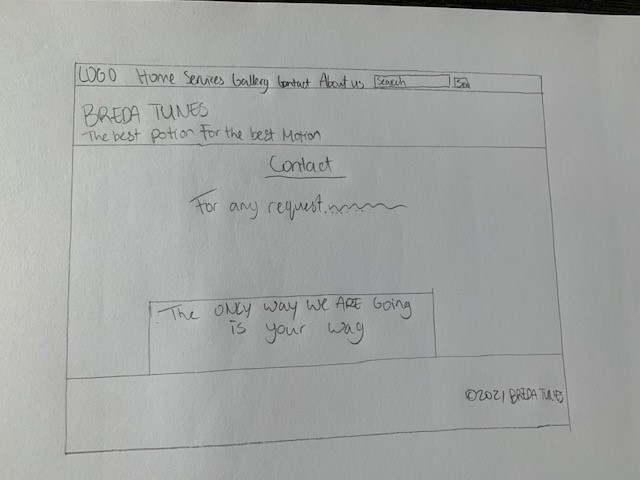 LOGO Home Services Gallery Contact About us Search
BREDA TUNES
The best potion For the best Motion
Contact
For any request.
The ONLY way WE ARE Going
IS your way
©2021 BREDA TUNES